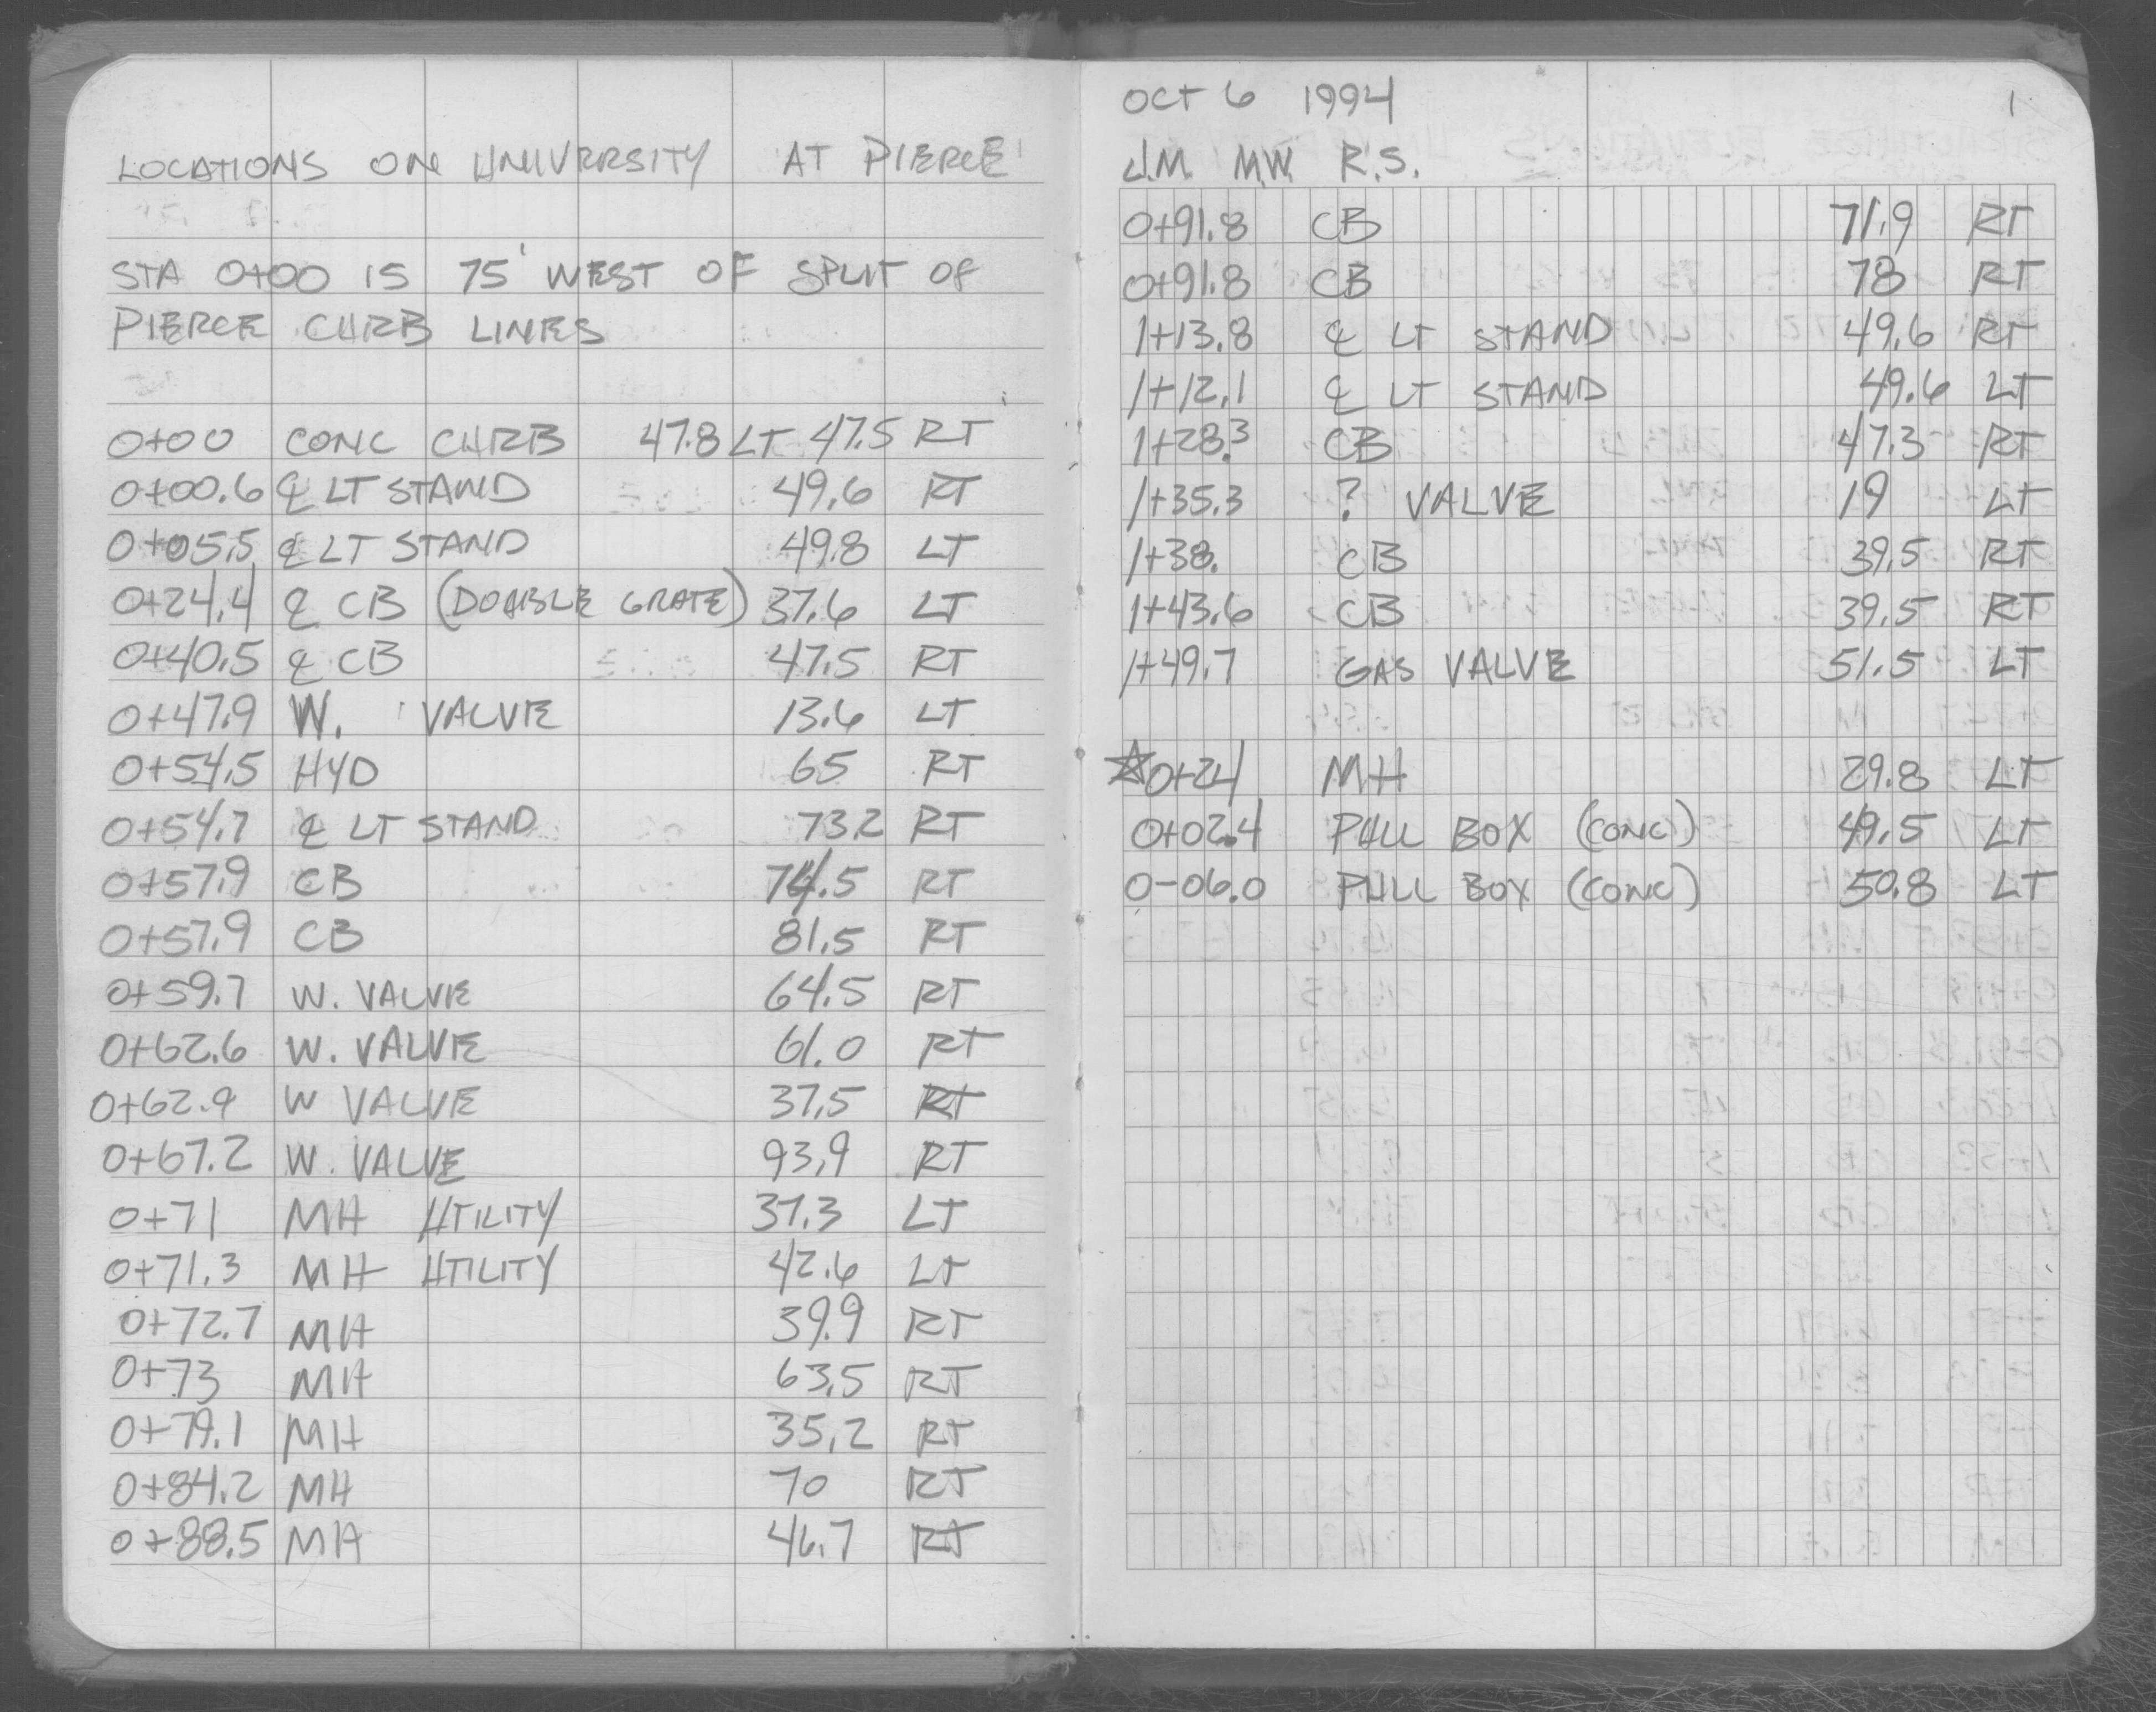 LOCATIONS ON UNIVERSITY AT PIERCE
STA 0+00 IS 75' WEST OF SPLIT OF
PIERCE CURB LINES
0+00 CONC CURB 47.8 LT 47.5 RT
0+00.6 ℄ LT STAND 49.6 RT
0+05.5 ℄ LT STAND 49.8 LT
0+24.4 ℄ CB (DOUBLE GRATE) 37.6 LT
0+40.5 ℄ CB 47.5 RT
0+47.9 W. VALVE 13.6 LT
0+54.5 HYD 65 RT
0+54.7 ℄ LT STAND 73.2 RT
0+57.9 CB 74.5 RT
0+57.9 CB 81.5 RT
0+59.7 W. VALVE 64.5 RT
0+62.6 W. VALVE 61.0 RT
0+62.9 W VALVE 37.5 RT
0+67.2 W. VALVE 93.9 RT
0+71 MH UTILITY 37.3 LT
0+71.3 MH UTILITY 42.6 LT
0+72.7 MH 39.9 RT
0+73 MH 63.5 RT
0+79.1 MH 35.2 RT
0+84.2 MH 70 RT
0+88.5 MH 46.7 RT
OCT 6 1994 1
J.M. M.W. R.S.
0+91.8 CB 71.9 RT
0+91.8 CB 78 RT
1+13.8 ℄ LT STAND 49.6 RT
1+12.1 ℄ LT STAND 49.6 LT
1+28.3 CB 47.3 RT
1+35.3 ? VALVE 19 LT
1+38. CB 39.5 RT
1+43.6 CB 39.5 RT
1+49.7 GAS VALVE 51.5 LT
☆0+24 MH 29.8 LT
0+02.4 PULL BOX (CONC) 49.5 LT
0-06.0 PULL BOX (CONC) 50.8 LT